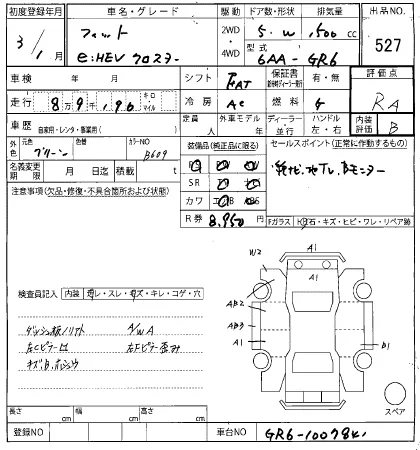 初度登録年月 車名・グレード 駆動 ドア数・形状 排気量 出品NO.
3/1月 フィット 2WD・4WD 5.W 1,500cc 527
e:HEV クロスター 型式 6AA-GR6
車検 年 月 シフト FAT 保証書 新車時ディーラー発行 有・無 評価点
走行 8万9千196 キロ マイル 冷房 AC 燃料 G RA
車歴 自家用・レンタ・事業用( ) 定員 人 外車モデル 年 ディーラー 並行 ハンドル 左・右 内装評価 B
外色 元色 グリーン 色替 カラーNO B609 装備品(純正品に限る) セールスポイント(正常に作動するもの)
名義変更期限 月 日迄 積載 t SR
注意事項(欠品・修復・不具合箇所および状態) カワ
R券 8,950円 Fガラス 石・キズ・ヒビ・ワレ・リペア跡
W2 A1
A1
検査員記入 内装 スレ・キズ・キレ・コゲ・穴 AB2
AB3
ダッシュ板ノリアト A/WA A1 B1
左Cピラーロ 右Fピラー歪み
キズ,B,ホシュウ
スペア
長さ cm 幅 cm 高さ cm
登録NO 車台NO GR6-10078